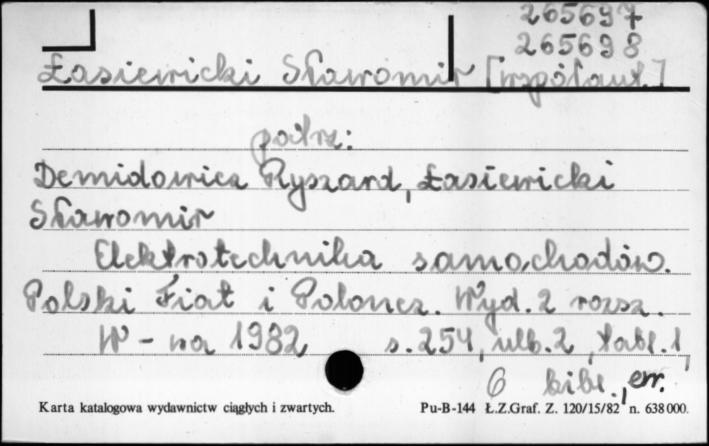 265697
265698
Łasiewicki Sławomir [współaut.]
patrz:
Demidowicz Ryszard, Łasiewicki
Sławomir
Elektrotechnika samochodów.
Polski Fiat i Polonez. Wyd. 2 rozsz.
W-wa 1982 s. 254, nlb. 2, tabl. 1,
6 bibl., err.
Karta katalogowa wydawnictw ciągłych i zwartych. Pu-B-144 Ł.Z.Graf. Z. 120/15/82 n. 638000.